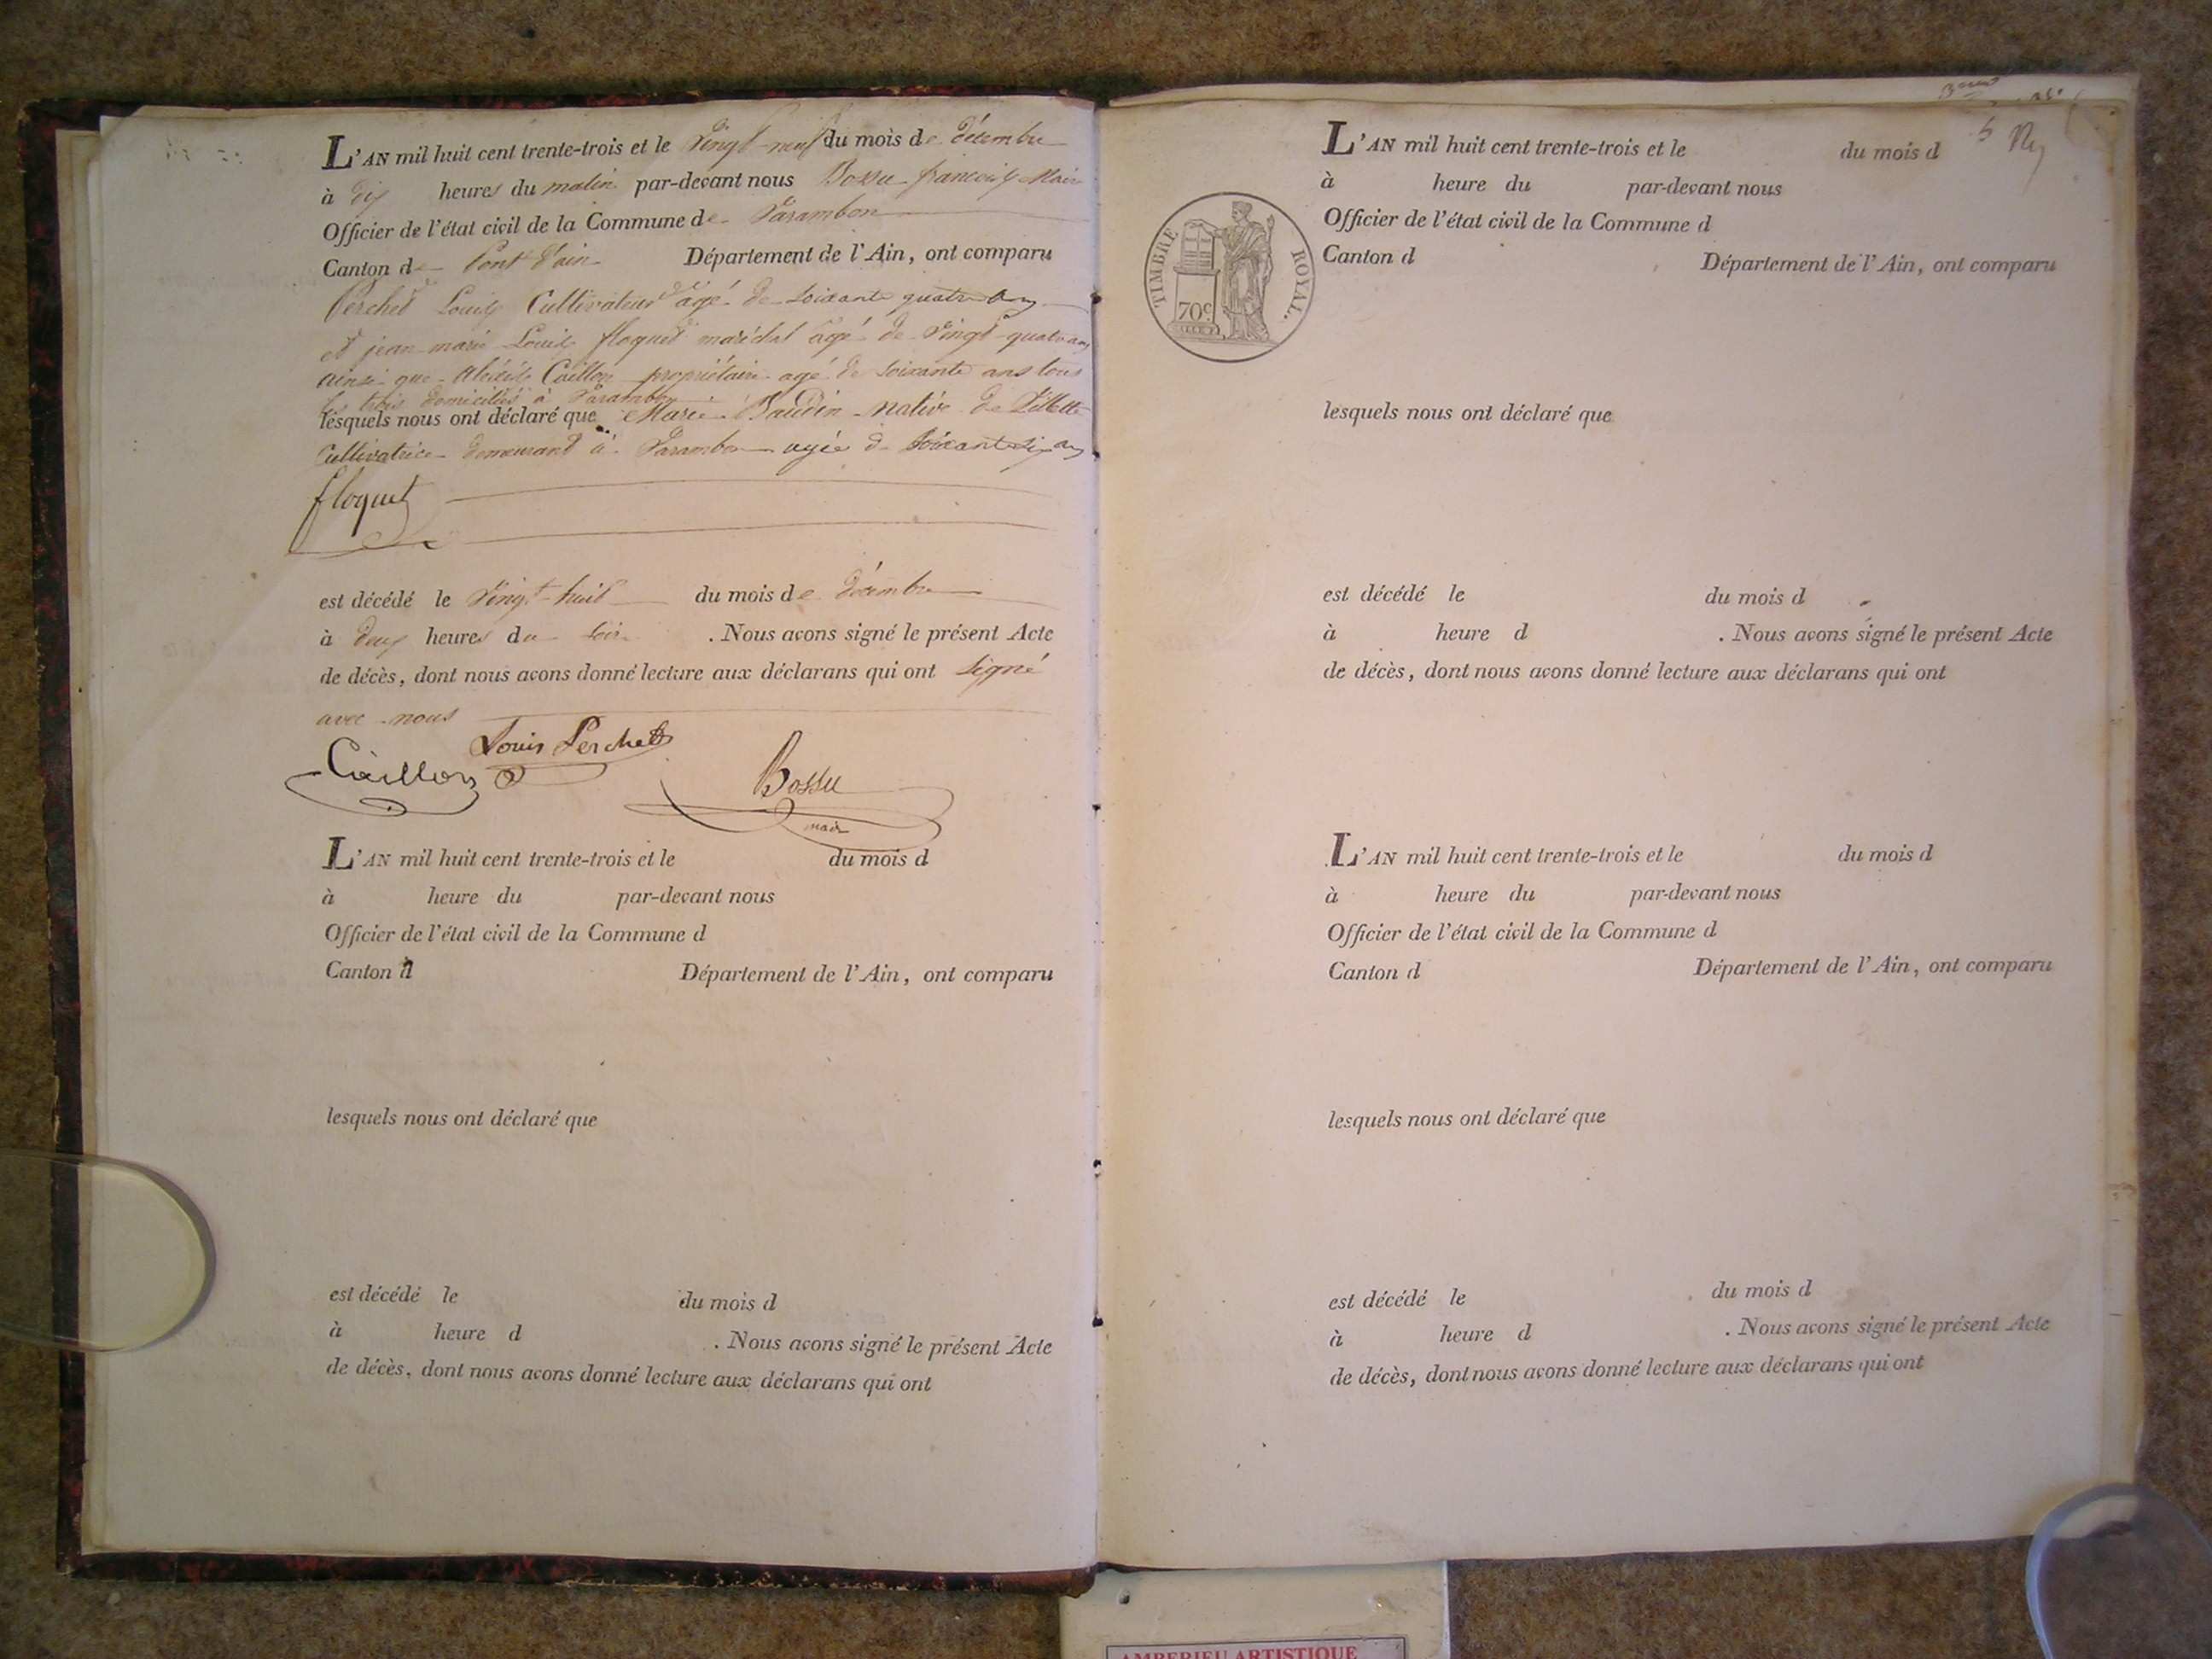 L'AN mil huit cent trente-trois et le Vingt-neuf du mois de décembre
à dix heures du matin par-devant nous Bossu françois Maire
Officier de l'état civil de la Commune de Varambon
Canton de Pont d'ain Département de l'Ain, ont comparu
Perchet Louis Cultivateur agé de soixante quatre ans
et jean marie Louis floquet maréchal agé de Vingt-quatre ans
ainsi que Caillon propriétaire agé de soixante ans tous
les trois domiciliés à Varambon
lesquels nous ont déclaré que Marie Baudin native de
Cultivatrice demeurant à Varambon agée de soixante ans
floquet
est décédé le Vingt-huit du mois de décembre
à deux heures du soir . Nous avons signé le présent Acte
de décès, dont nous avons donné lecture aux déclarans qui ont signé
avec nous
Louis Perchet
Caillon
Bossu
maire
L'AN mil huit cent trente-trois et le du mois d
à heure du par-devant nous
Officier de l'état civil de la Commune d
Canton d Département de l'Ain, ont comparu
lesquels nous ont déclaré que
est décédé le du mois d
à heure d . Nous avons signé le présent Acte
de décès, dont nous avons donné lecture aux déclarans qui ont
L'AN mil huit cent trente-trois et le du mois d
à heure du par-devant nous
Officier de l'état civil de la Commune d
Canton d Département de l'Ain, ont comparu
TIMBRE ROYAL.
70c
lesquels nous ont déclaré que
est décédé le du mois d
à heure d . Nous avons signé le présent Acte
de décès, dont nous avons donné lecture aux déclarans qui ont
L'AN mil huit cent trente-trois et le du mois d
à heure du par-devant nous
Officier de l'état civil de la Commune d
Canton d Département de l'Ain, ont comparu
lesquels nous ont déclaré que
est décédé le du mois d
à heure d . Nous avons signé le présent Acte
de décès, dont nous avons donné lecture aux déclarans qui ont
AMBERIEU ARTISTIQUE